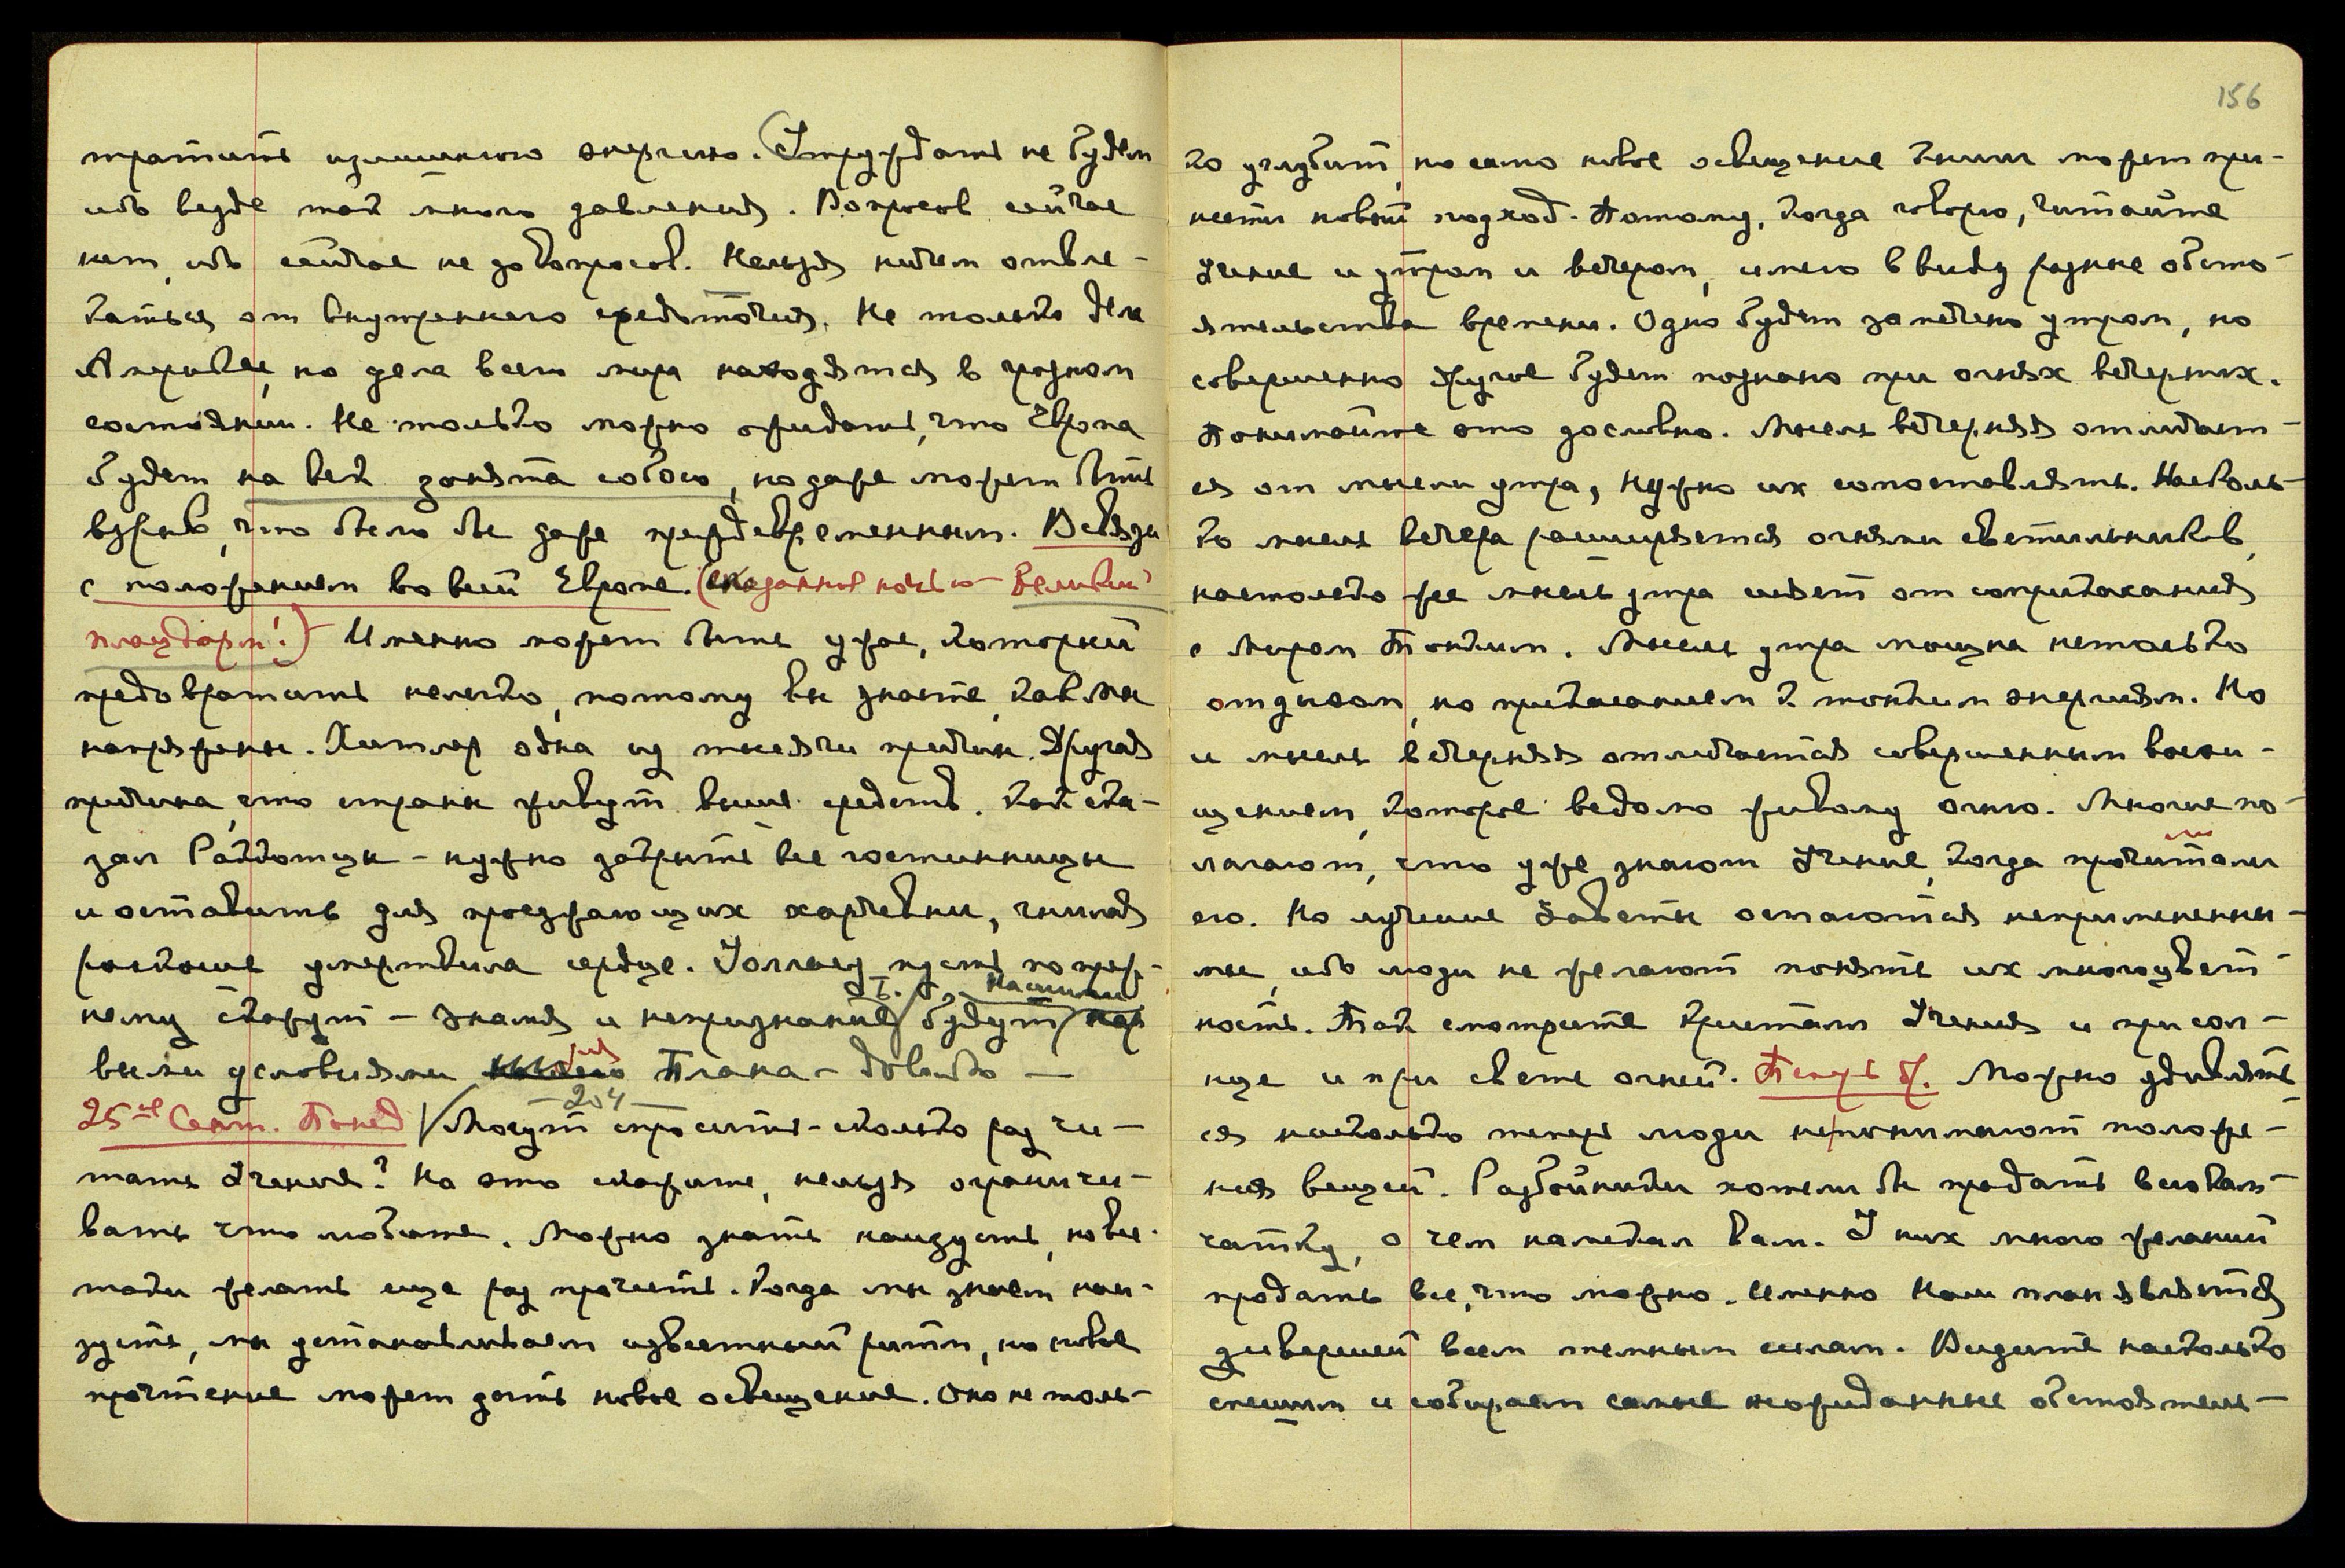 тратить излишнюю энергию. (Утруждать не будем
ибо везде так много давления. Вопросов сейчас
нет, ибо сейчас не до вопросов. Нельзя ничем отвле-
каться от внутреннего средоточия. Не только дела
Америки, но дела всего мира находятся в грозном
состоянии. Не только можно ожидать, что Европа
будет на век занята собою, но даже может быть
взрыв, что было бы даже преждевременным. В связи
с положением во всей Европе. (сказанное ночью – Великий
плацдарм!) Именно может быть ужас, который
предовратить нелегко, потому вы знаете, как Мы
напряжены. Хитлер одна из тысячи причин. Другая
причина, что страны живут выше средств. Как ска-
зал Раккотцы – нужно закрыть все гостинницы
и оставить для проезжающих харчевни, гнилая
роскошь умертвила сердце. Уоллесу пусть по преж-
нему скажут – Знамя и непризнание Т. будут Нашими пер
выми условиями Плана – довольно —
– 204 –
25ое Сент. Понед / Могут спросить – сколько раз чи-
тать Учение? На это скажите, нельзя ограничи-
вать что любите. Можно знать наизусть, но все-
таки желать еще раз прочесть. Когда мы знаем наи-
зусть, мы устанавливаем известный ритм, но новое
прочтение может дать новое освещение. Оно не толь-
156
ко углубит, но само новое освещение книги может при-
нести новый подход. Потому, когда говорю, читайте
Учение и утром и вечером, имею в виду разные обсто-
ятельства времени. Одно будет замечено утром, но
совершенно другое будет познано при огнях вечерних.
Понимайте это дословно. Мысль вечерняя отличает-
ся от мысли утра, нужно их сопоставлять. Насколь-
ко мысль вечера расширяется огнями светильников,
настолько же мысль утра сияет от соприкасания
с Миром Тонким. Мысль утра мощна не только
отдыхом, но прикасанием к тонким энергиям. Но
и мысль вечерняя отличается совершенным восхи-
щением, которое ведомо живому огню. Многие по-
лагают, что уже знают Учение, когда прочитали
его. Но лучшие Заветы остаются непримененны-
ми, ибо люди не желают понять их многоцвет-
ность. Так смотрите кристалл Учения и при солн-
це и при свете огней. Теперь б. Можно удивлять
ся насколько теперь люди не понимают положе-
ния вещей. Разбойники хотели бы продать
чатку, о чем намекал вам. У них много желаний
продать все, что можно. Именно Наш план является
диверсией всем темным силам. Видите насколько
спешим и собираем самые неожиданные обстоятель-